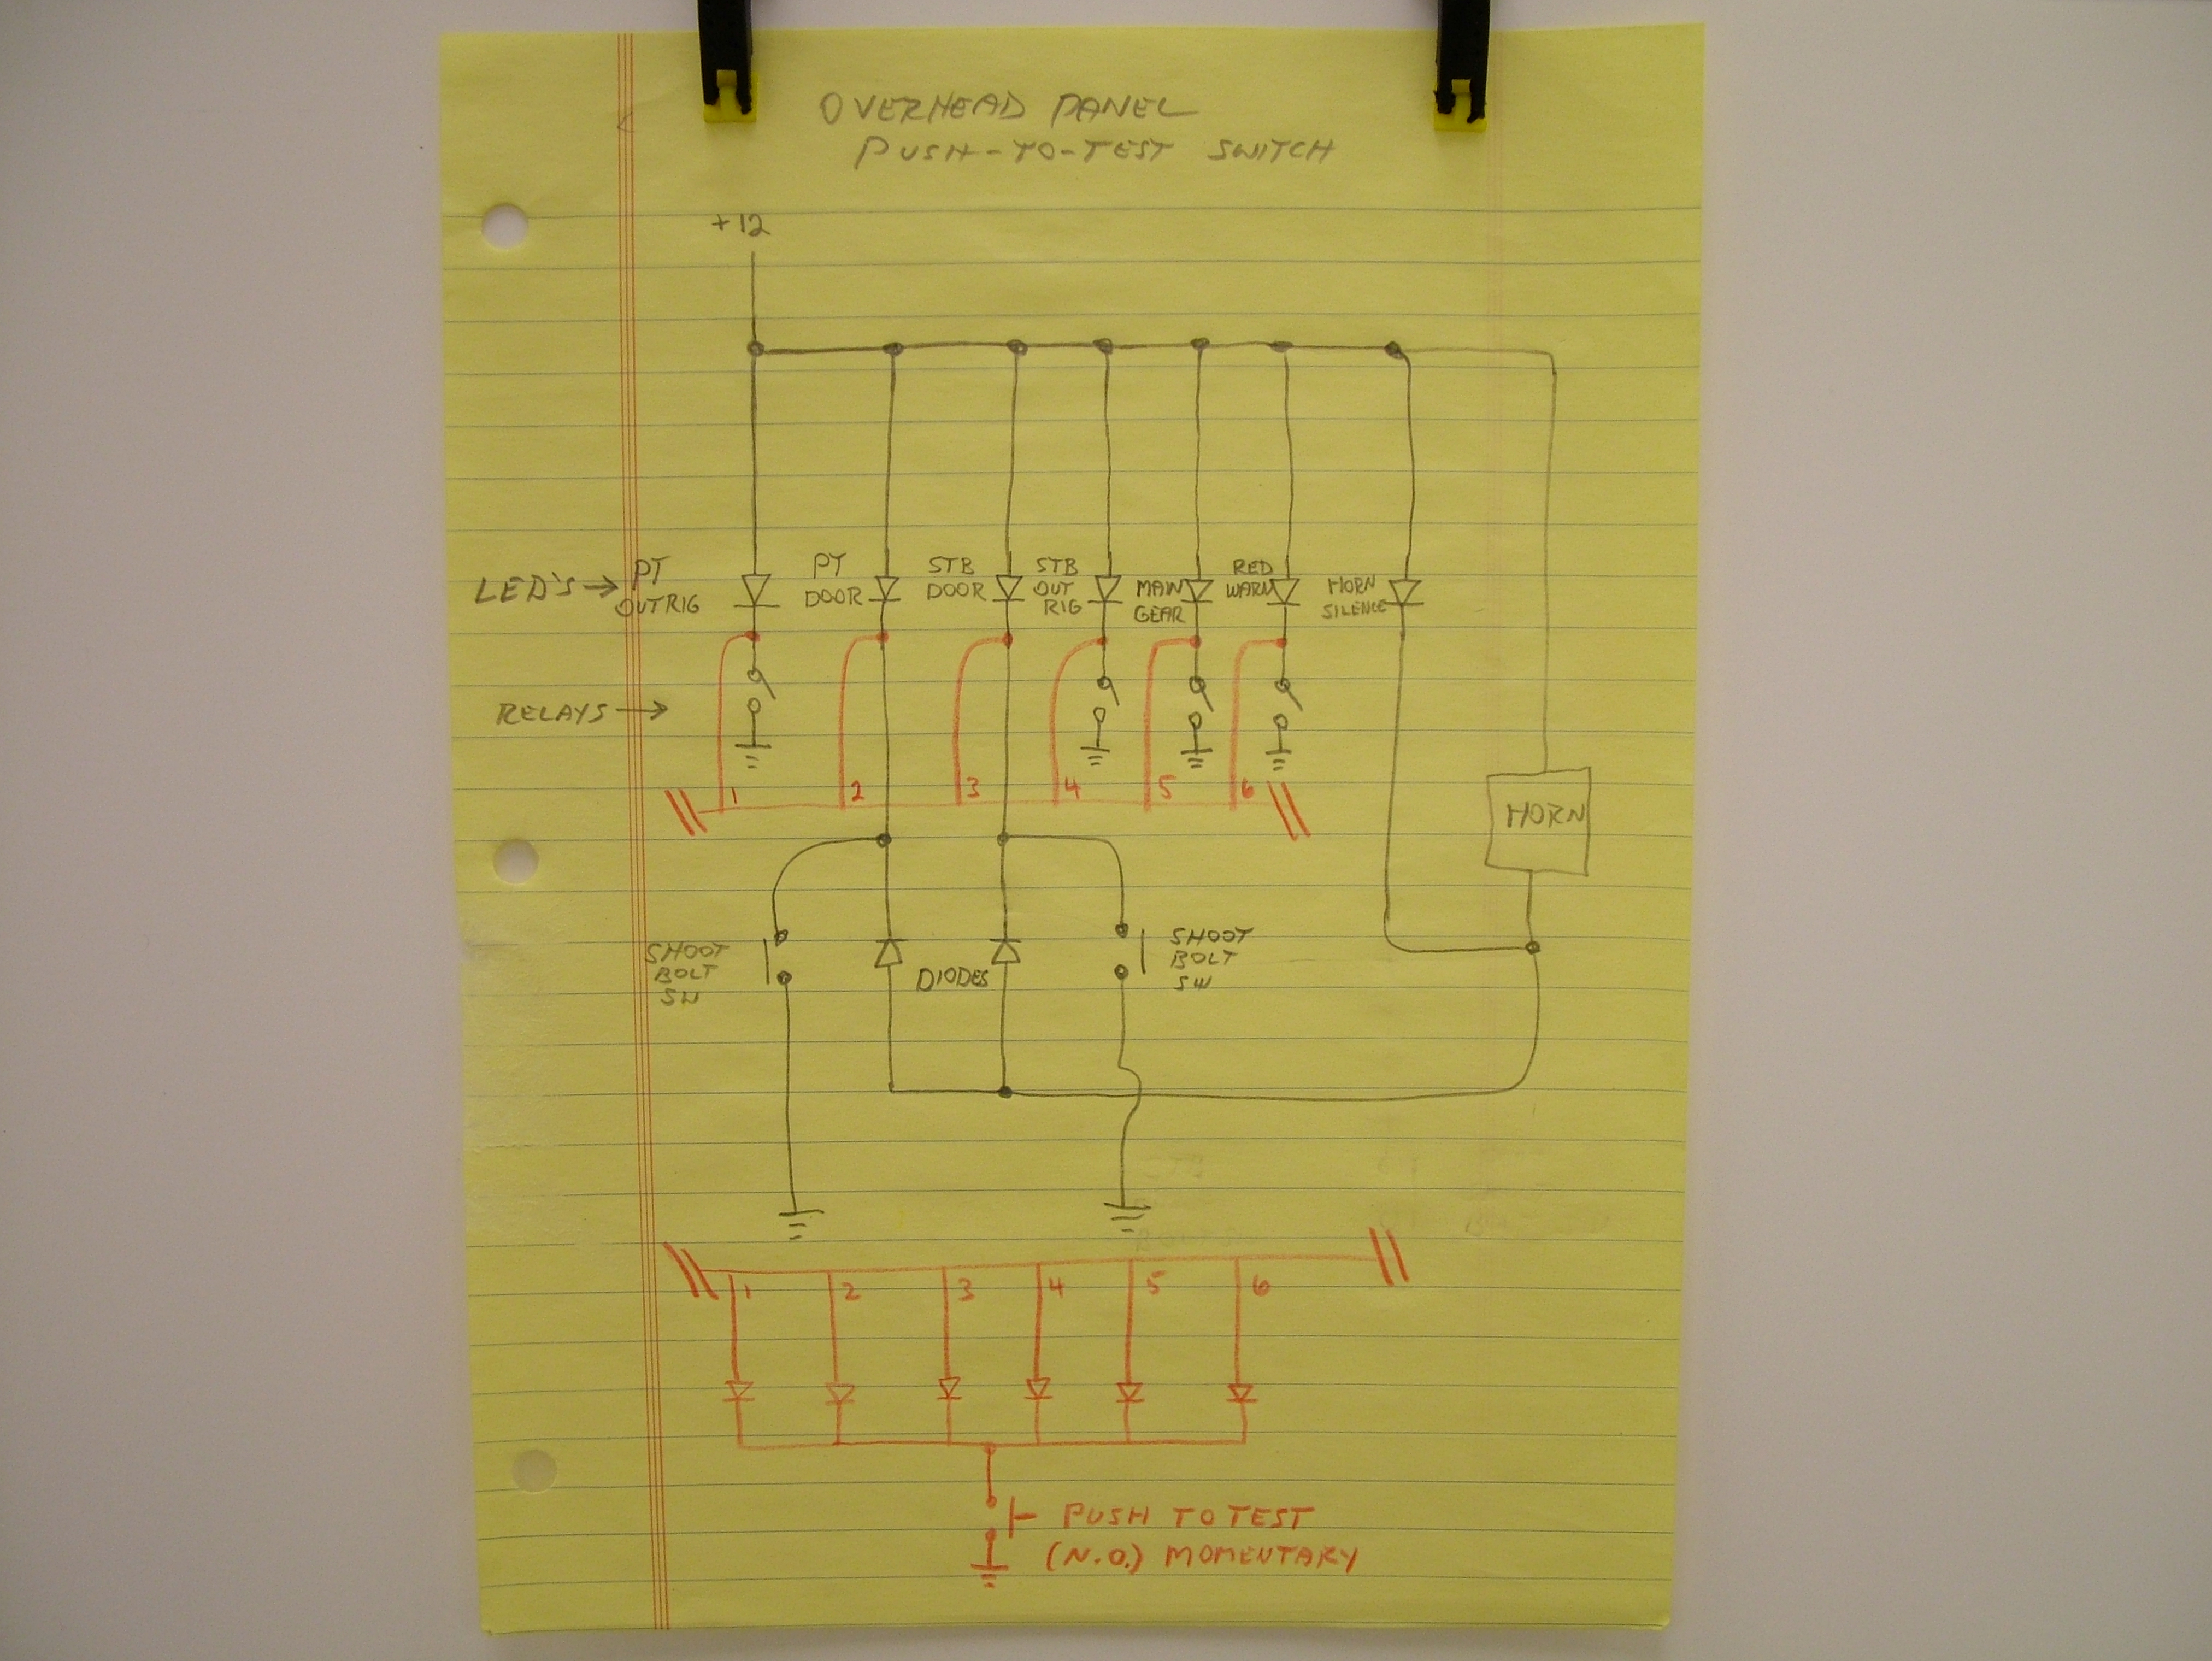 OVERHEAD PANEL
PUSH-TO-TEST SWITCH
+12
LED'S →
PT
OUTRIG
PT
DOOR
STB
DOOR
STB
OUT
RIG
MAIN
GEAR
RED
WARN
HORN
SILENCE
RELAYS →
1 2 3 4 5 6
HORN
SHOOT
BOLT
SW
DIODES
SHOOT
BOLT
SW
1 2 3 4 5 6
PUSH TO TEST
(N.O.) MOMENTARY